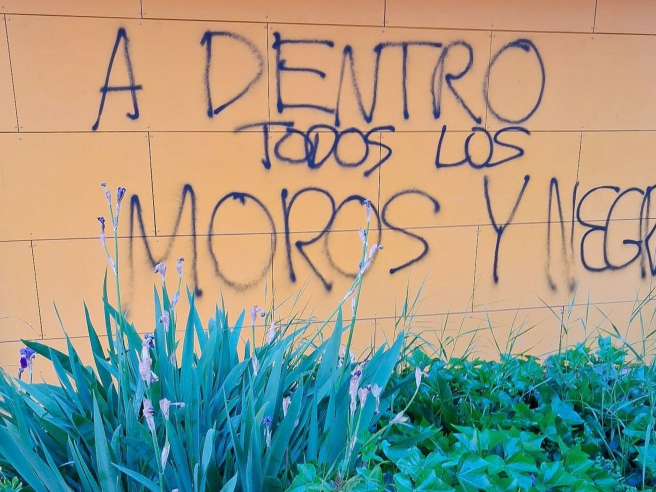 A DENTRO
TODOS LOS
MOROS Y NEGR